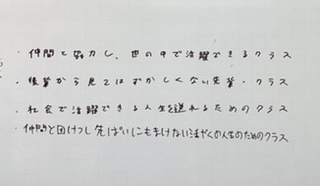 ・仲間と協力し、世の中で活躍できるクラス
・後輩から見てはずかしくない先輩・クラス
・社会で活躍できる人生を送れるためのクラス
・仲間と団けつし先ぱいにもまけない活やくの人生のためのクラス